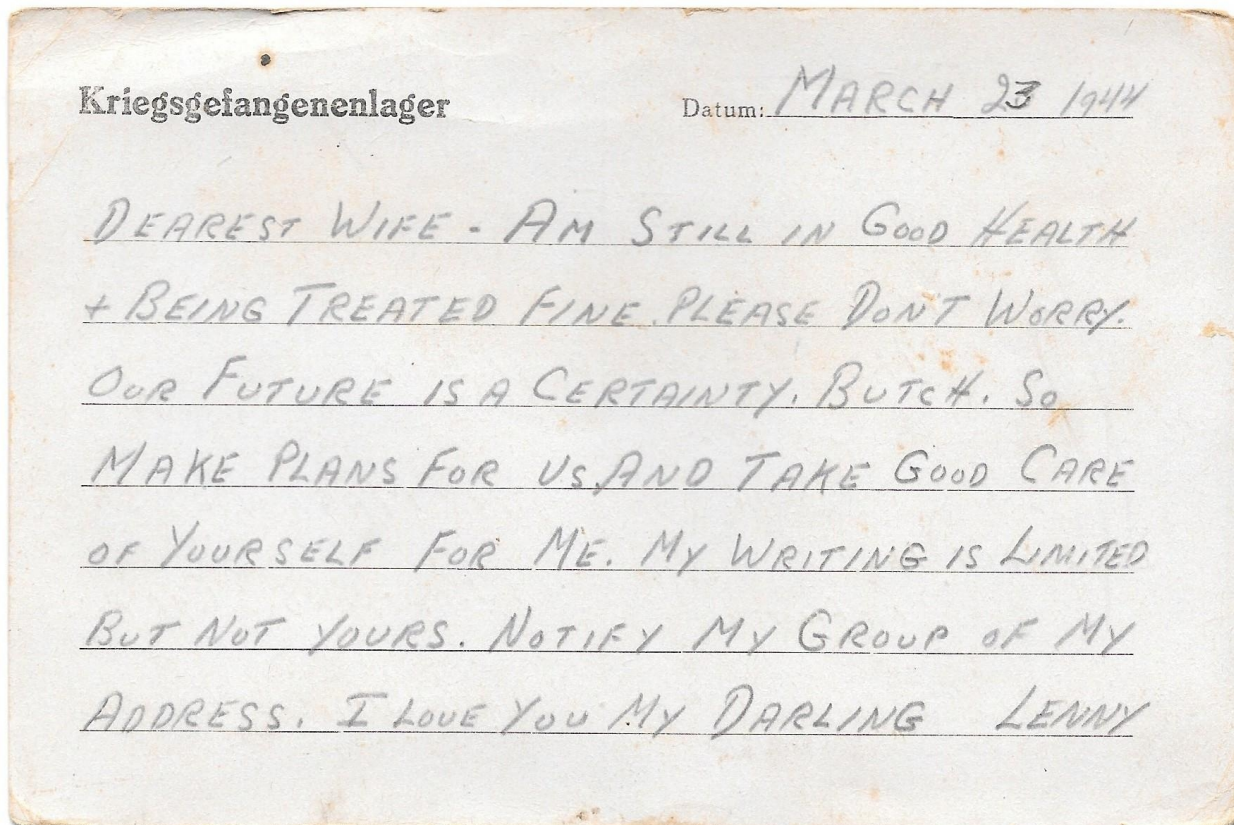 Kriegsgefangenenlager Datum: MARCH 23 1944
DEAREST WIFE - AM STILL IN GOOD HEALTH
+ BEING TREATED FINE. PLEASE DON'T WORRY.
OUR FUTURE IS A CERTAINTY. BUTCH. SO
MAKE PLANS FOR US AND TAKE GOOD CARE
OF YOURSELF FOR ME. MY WRITING IS LIMITED
BUT NOT YOURS. NOTIFY MY GROUP OF MY
ADDRESS. I LOVE YOU MY DARLING LENNY